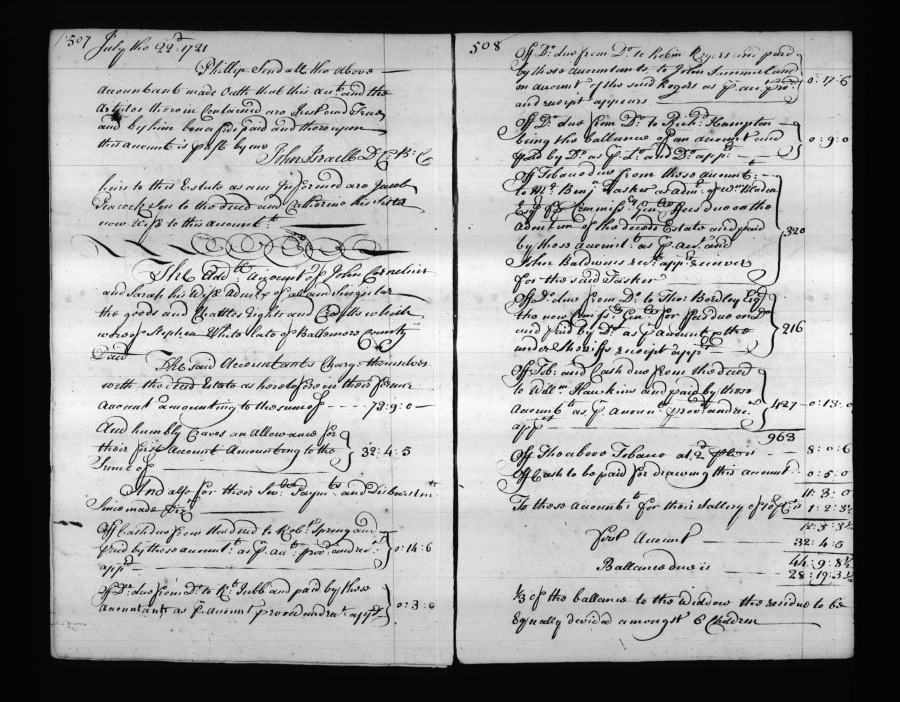 507
July the 22d. 1721
Phillip Sindall the above
Accountant made Oath that this Acct. and the
Articles therein Contained are Just and True
and by him bona fide paid and thereupon
this account is past by me
John Israell D: C: B: C
heirs to this Estate as am Informed are Jacob
Peacock Son to the deced and Catherine his Sister
now Wife to this accountt.
The Addl. Account of John Cornelius
and Sarah his Wife Admrs of all and Singular
the goods and Chattles Rights and Credits which
were of Stephen White late of Baltemore County
Decd
The said Accountants Charge themselves
with the deced Estate as heretofore in their former
Account amounting to the sume of - - - 72:9:0
And humbly Craves an Allowance for
their first Account Amounting to the 32:4:5
Sume of
And also for their Sevl. Paymts and Disbursmts.
Since made
Off Cash due from the deced to Robt Spring and
paid by these accountts. as p acct. prod. and rect. 0:14:6
appd
Off Do. due from Do. to Rt. Jubb and paid by these
Accountants as p. account proved and rect. appd. 0:3:0
508
Off Do. due from Do. to Robin Rogers and paid
by these accountants to John
on account of the said Rogers as p acc. prod. 0:17:6
and receipt appears
Off Do. due from Do. to Richd Hampton
being the ballance of an account and 0:9:0
paid by Do. as p do. and Do. appd.
Off Tobacco due from these accountts.
to Mr. Benj. Tasker as admr. of Wm
Esqr Commissry Genll fees due on the
Admtion of the deced Estate and paid 320
by these accountts. as p acct. and
John Baldwin's rect. appd. receiver
for the said Tasker
Off Do. due from Do. to Thos Bordley Esqr
the now Comissry Genll for fees due on Do 216
and paid by Do. as p account & the
under Sheriffs receipt appd
Off Tob: and Cash due from the deced
to Willm Hawkins and paid by these 427 - 0:13:0
Accountts as p account prod and rect.
appd
963
Off the above Tobacco at 2d p lb is - - 8:0:6
Off Cash to be paid for drawing this account 0:5:0
11:3:0
To these Accountts. for their Sallery 1:2:3½
12:5:3½
first Account 32:4:5
44:9:8½
Ballance due is 28:19:3½
⅓ of the ballance to the Widdow the residue to be
Equally devided amongst 6 Children